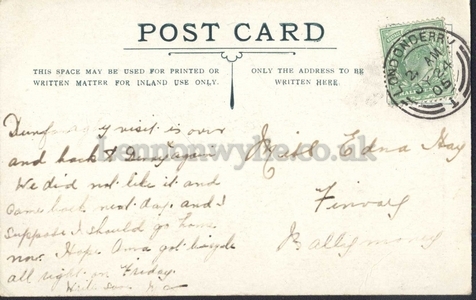 POST CARD
THIS SPACE MAY BE USED FOR PRINTED OR
WRITTEN MATTER FOR INLAND USE ONLY.
ONLY THE ADDRESS TO BE
WRITTEN HERE.
LONDONDERRY
2 AM
24
05
1
visit is over
and back to again
We did not like it and
came back next day and I
suppose I should go home
now. Hope got
all right on Friday.
Will soon
Miss Edna Hay
Finvoy
Ballymoney
Lennonwylie.co.uk